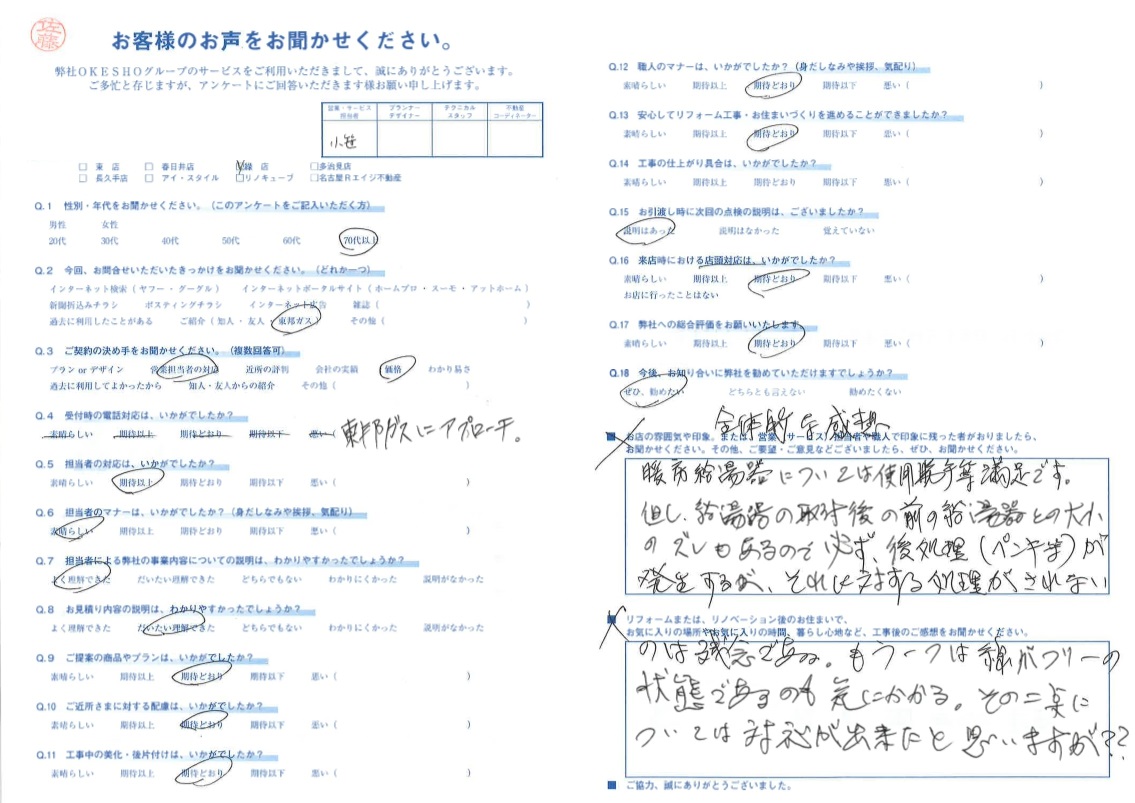 佐藤
お客様のお声をお聞かせください。
弊社OKESHOグループのサービスをご利用いただきまして、誠にありがとうございます。
ご多忙と存じますが、アンケートにご回答いただきます様お願い申し上げます。
営業・サービス担当者 プランナーデザイナー テクニカルスタッフ 不動産コーディネーター
小笹
□ 東店 □ 春日井店 □緑店 □多治見店
□ 長久手店 □ アイ・スタイル □リノキューブ □名古屋Rエイジ不動産
Q.1 性別・年代をお聞かせください。（このアンケートをご記入いただく方）
男性 女性
20代 30代 40代 50代 60代 70代以上
Q.2 今回、お問合せいただいたきっかけをお聞かせください。（どれか一つ）
インターネット検索（ヤフー・グーグル） インターネットポータルサイト（ホームプロ・スーモ・アットホーム）
新聞折込みチラシ ポスティングチラシ インターネット広告 雑誌（ ）
過去に利用したことがある ご紹介（知人・友人・東邦ガス） その他（ ）
Q.3 ご契約の決め手をお聞かせください。（複数回答可）
プラン or デザイン 営業担当者の対応 近所の評判 会社の実績 価格 わかり易さ
過去に利用してよかったから 知人・友人からの紹介 その他（ ）
Q.4 受付時の電話対応は、いかがでしたか？
素晴らしい 期待以上 期待どおり 期待以下 悪い（ 東邦ガスにアプローチ。
Q.5 担当者の対応は、いかがでしたか？
素晴らしい 期待以上 期待どおり 期待以下 悪い（ ）
Q.6 担当者のマナーは、いかがでしたか？（身だしなみや挨拶、気配り）
素晴らしい 期待以上 期待どおり 期待以下 悪い（ ）
Q.7 担当者による弊社の事業内容についての説明は、わかりやすかったでしょうか？
よく理解できた だいたい理解できた どちらでもない わかりにくかった 説明がなかった
Q.8 お見積り内容の説明は、わかりやすかったでしょうか？
よく理解できた だいたい理解できた どちらでもない わかりにくかった 説明がなかった
Q.9 ご提案の商品やプランは、いかがでしたか？
素晴らしい 期待以上 期待どおり 期待以下 悪い（ ）
Q.10 ご近所さまに対する配慮は、いかがでしたか？
素晴らしい 期待以上 期待どおり 期待以下 悪い（ ）
Q.11 工事中の美化・後片付けは、いかがでしたか？
素晴らしい 期待以上 期待どおり 期待以下 悪い（ ）
Q.12 職人のマナーは、いかがでしたか？（身だしなみや挨拶、気配り）
素晴らしい 期待以上 期待どおり 期待以下 悪い（ ）
Q.13 安心してリフォーム工事・お住まいづくりを進めることができましたか？
素晴らしい 期待以上 期待どおり 期待以下 悪い（ ）
Q.14 工事の仕上がり具合は、いかがでしたか？
素晴らしい 期待以上 期待どおり 期待以下 悪い（ ）
Q.15 お引渡し時に次回の点検の説明は、ございましたか？
説明はあった 説明はなかった 覚えていない
Q.16 来店時における店頭対応は、いかがでしたか？
素晴らしい 期待以上 期待どおり 期待以下 悪い（ ）
お店に行ったことはない
Q.17 弊社への総合評価をお願いいたします。
素晴らしい 期待以上 期待どおり 期待以下 悪い（ ）
Q.18 今後、お知り合いに弊社を勧めていただけますでしょうか？
ぜひ、勧めたい どちらとも言えない 勧めたくない
全体的な感想
■ お店の雰囲気や印象。または、営業（サービス）担当者や職人で印象に残った者がおりましたら、
お聞かせください。その他、ご要望・ご意見などございましたら、ぜひ、お聞かせください。
暖房給湯器については使用勝手等満足です。
但し、給湯器の取付後の前の給湯器との大小
のズレもあるので必ず、後処理（ペンキ等）が
発生するが、それに対する処理がされない
■ リフォームまたは、リノベーション後のお住まいで、
お気に入りの場所やお気に入りの時間、暮らし心地など、工事後のご感想をお聞かせください。
のは残念である。もう一つは線がフリーの
状態であるのも気にかかる。その二点に
ついては対応が出来たと思いますが??
■ ご協力、誠にありがとうございました。